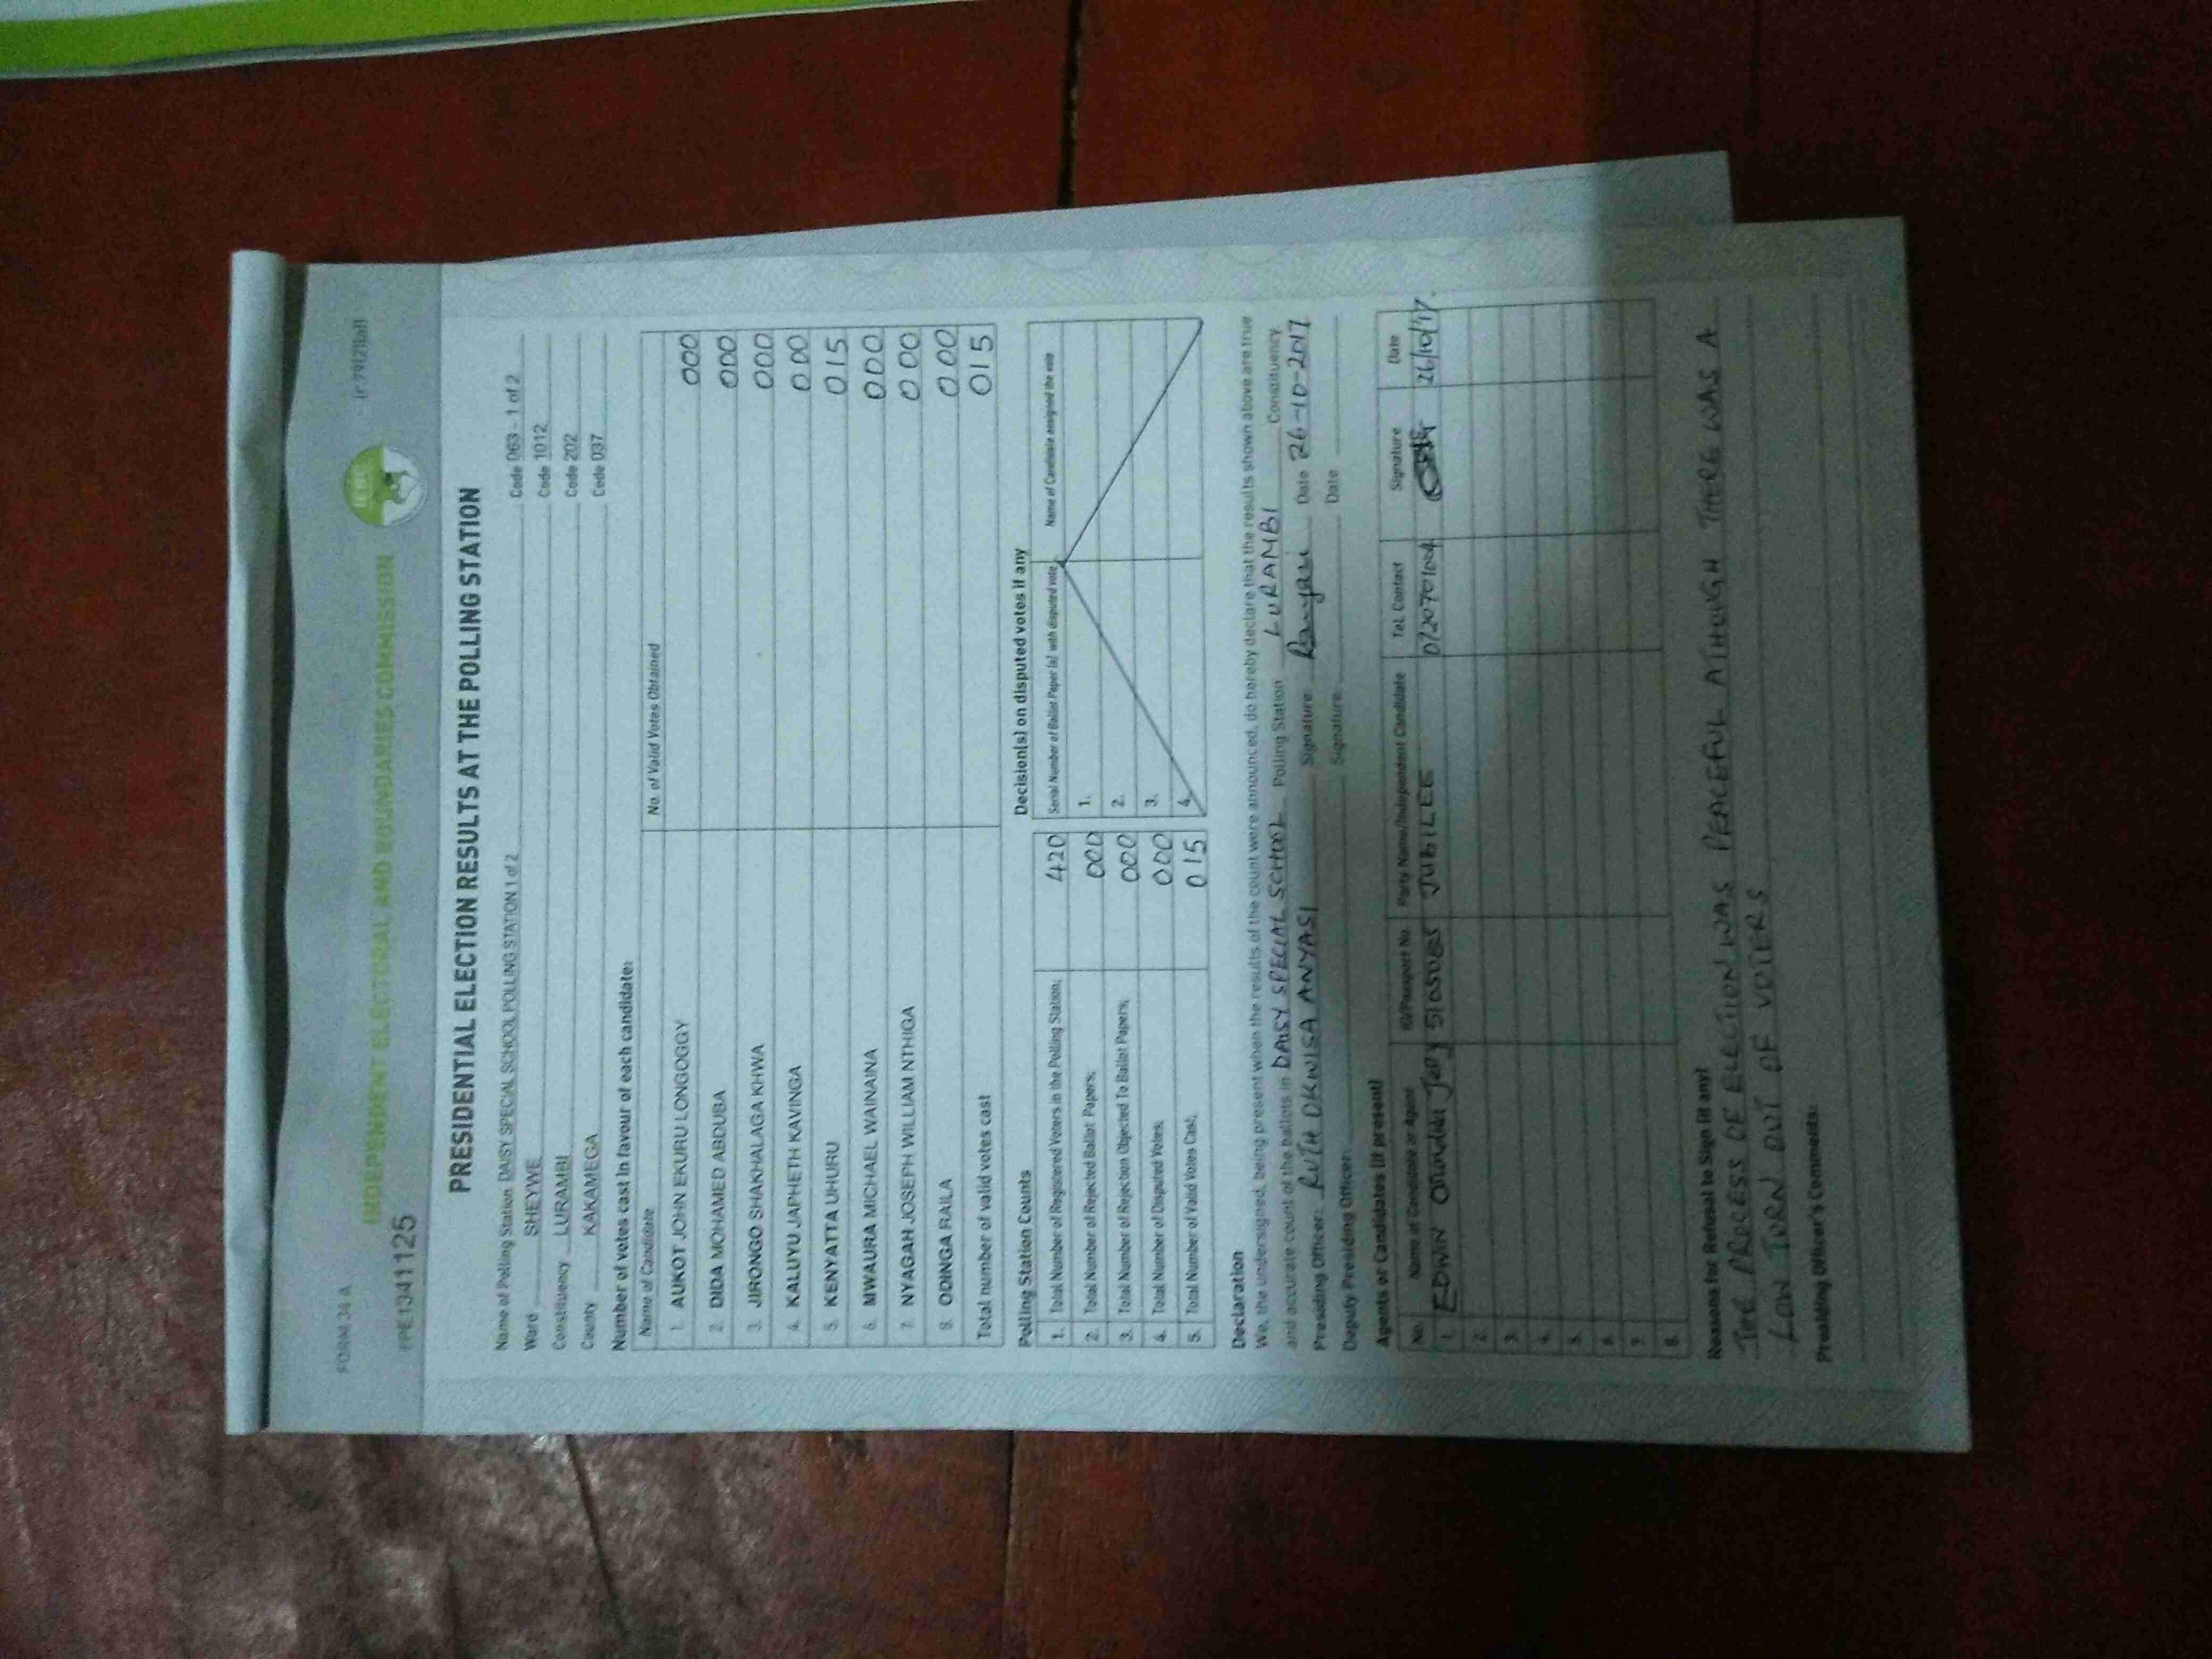 FORM 34 A
INDEPENDENT ELECTORAL AND BOUNDARIES COMMISSION
IEBC
PRESIDENTIAL ELECTION RESULTS AT THE POLLING STATION
Name of Polling Station DAISY SPECIAL SCHOOL POLLING STATION 1 of 2 Code 063 - 1 of 2
Ward SHEYWE Code 1012
Constituency LURAMBI Code 202
County KAKAMEGA Code 037
Number of votes cast in favour of each candidate:
Name of Candidate No. of Valid Votes Obtained
1. AUKOT JOHN EKURU LONGOGGY 000
2. DIDA MOHAMED ABDUBA 000
3. JIRONGO SHAKHALAGA KHWA 000
4. KALUYU JAPHETH KAVINGA 000
5. KENYATTA UHURU 015
6. MWAURA MICHAEL WAINAINA 000
7. NYAGAH JOSEPH WILLIAM NTHIGA 000
8. ODINGA RAILA 000
Total number of valid votes cast 015
Polling Station Counts Decision(s) on disputed votes if any
1. Total Number of Registered Voters in the Polling Station; 420 Serial Number of Ballot Paper (s) with disputed vote Name of Candidate assigned the vote
2. Total Number of Rejected Ballot Papers; 000 1.
3. Total Number of Rejection Objected To Ballot Papers; 000 2.
4. Total Number of Disputed Votes; 000 3.
5. Total Number of Valid Votes Cast; 015 4.
Declaration
We, the undersigned, being present when the results of the count were announced, do hereby declare that the results shown above are true
and accurate count of the ballots in DAISY SPECIAL SCHOOL Polling Station LURAMBI Constituency.
Presiding Officer: RUTH OKWISA ANYASI Signature Date 26-10-2017
Deputy Presiding Officer: Signature Date
Agents or Candidates (if present)
No. Name of Candidate or Agent ID/Passport No. Party Name/Independent Candidate Tel. Contact Signature Date
1. EDWIN JUBILEE 26/10/17
2.
3.
4.
5.
6.
7.
8.
Reasons for Refusal to Sign (if any)
THE PROCESS OF ELECTION WAS PEACEFUL ATHOUGH THERE WAS A
LOW TORN OUT OF VOTERS
Presiding Officer's Comments: